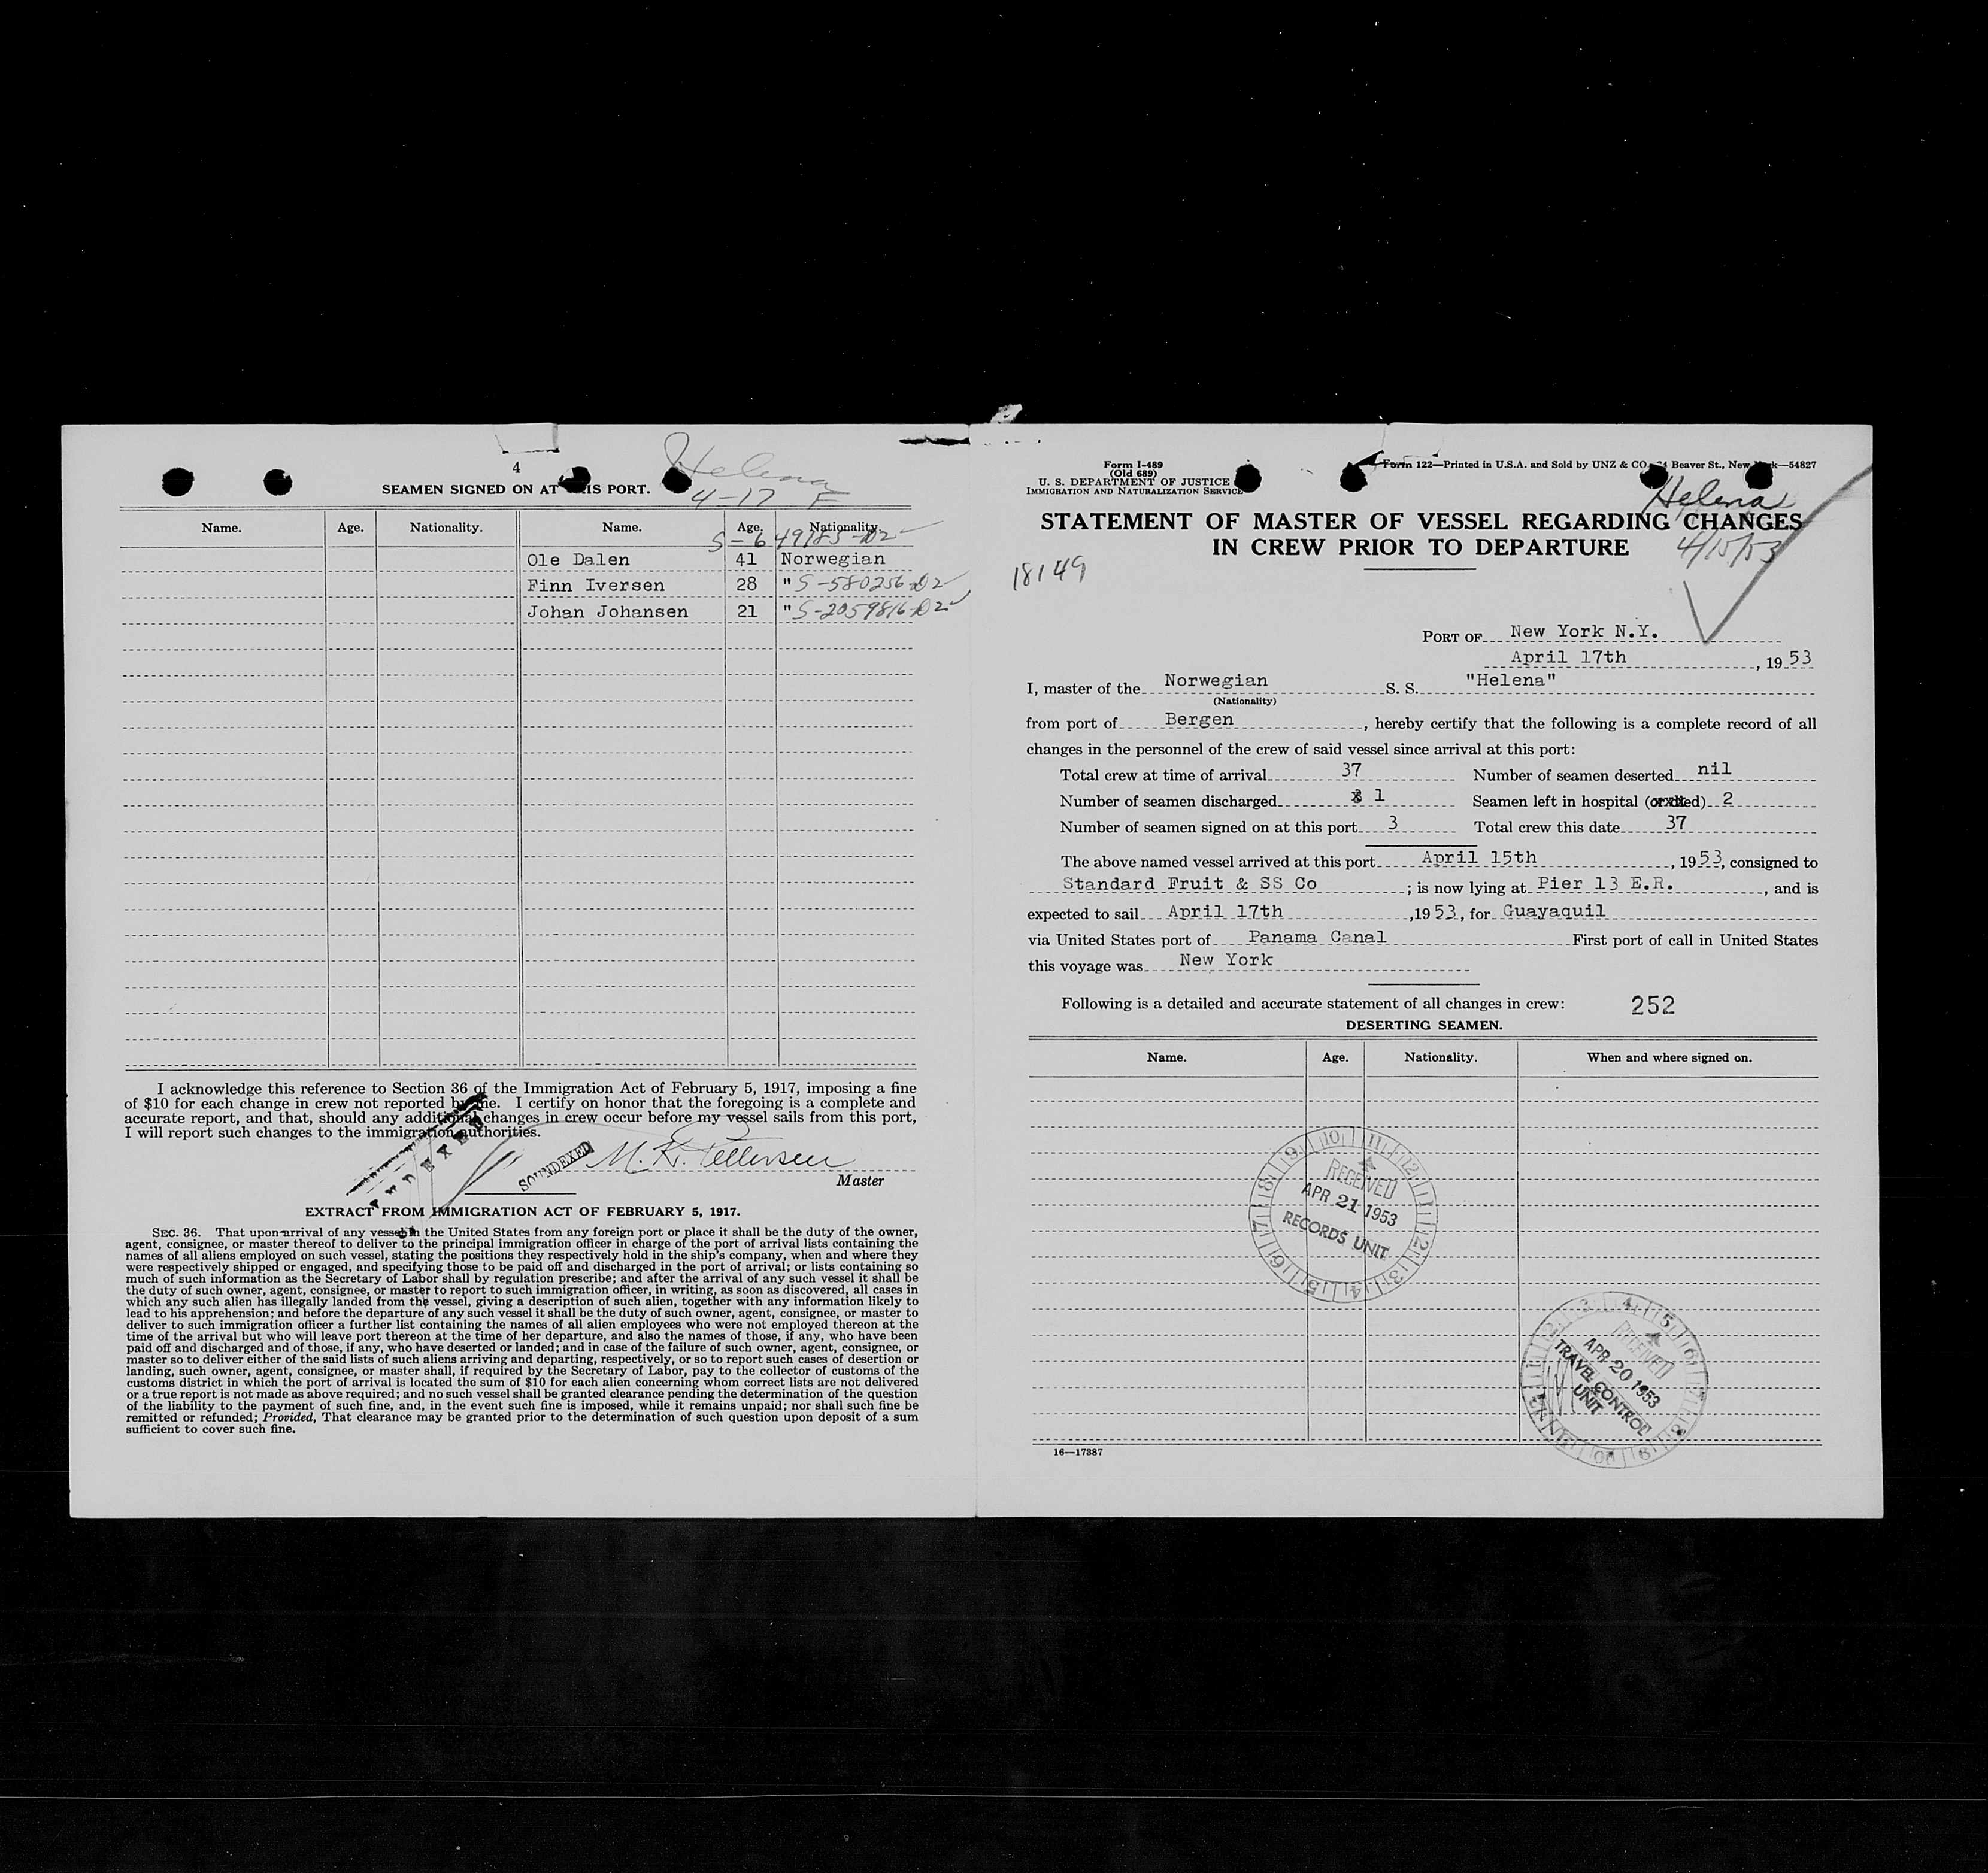 4
Helena
4-17 F
SEAMEN SIGNED ON AT THIS PORT.
Name. Age. Nationality. Name. Age. Nationality.
S-649785-D2
Ole Dalen 41 Norwegian
Finn Iversen 28 " S-580256-D2
Johan Johansen 21 " S-2059816-D2
I acknowledge this reference to Section 36 of the Immigration Act of February 5, 1917, imposing a fine
of $10 for each change in crew not reported by me. I certify on honor that the foregoing is a complete and
accurate report, and that, should any additional changes in crew occur before my vessel sails from this port,
I will report such changes to the immigration authorities.
INDEXED
SOUNDEXED
M. Kr. Pettersen
Master
EXTRACT FROM IMMIGRATION ACT OF FEBRUARY 5, 1917.
SEC. 36. That upon arrival of any vessel in the United States from any foreign port or place it shall be the duty of the owner,
agent, consignee, or master thereof to deliver to the principal immigration officer in charge of the port of arrival lists containing the
names of all aliens employed on such vessel, stating the positions they respectively hold in the ship's company, when and where they
were respectively shipped or engaged, and specifying those to be paid off and discharged in the port of arrival; or lists containing so
much of such information as the Secretary of Labor shall by regulation prescribe; and after the arrival of any such vessel it shall be
the duty of such owner, agent, consignee, or master to report to such immigration officer, in writing, as soon as discovered, all cases in
which any such alien has illegally landed from the vessel, giving a description of such alien, together with any information likely to
lead to his apprehension; and before the departure of any such vessel it shall be the duty of such owner, agent, consignee, or master to
deliver to such immigration officer a further list containing the names of all alien employees who were not employed thereon at the
time of the arrival but who will leave port thereon at the time of her departure, and also the names of those, if any, who have been
paid off and discharged and of those, if any, who have deserted or landed; and in case of the failure of such owner, agent, consignee, or
master so to deliver either of the said lists of such aliens arriving and departing, respectively, or so to report such cases of desertion or
landing, such owner, agent, consignee, or master shall, if required by the Secretary of Labor, pay to the collector of customs of the
customs district in which the port of arrival is located the sum of $10 for each alien concerning whom correct lists are not delivered
or a true report is not made as above required; and no such vessel shall be granted clearance pending the determination of the question
of the liability to the payment of such fine, and, in the event such fine is imposed, while it remains unpaid; nor shall such fine be
remitted or refunded; Provided, That clearance may be granted prior to the determination of such question upon deposit of a sum
sufficient to cover such fine.
Form I-489
(Old 689)
U. S. DEPARTMENT OF JUSTICE
IMMIGRATION AND NATURALIZATION SERVICE
Form 122—Printed in U.S.A. and Sold by UNZ & CO., 24 Beaver St., New York—54827
Helena
4/15/53
STATEMENT OF MASTER OF VESSEL REGARDING CHANGES
IN CREW PRIOR TO DEPARTURE
18149
PORT OF New York N.Y.
April 17th, 1953
I, master of the Norwegian S. S. "Helena"
(Nationality)
from port of Bergen, hereby certify that the following is a complete record of all
changes in the personnel of the crew of said vessel since arrival at this port:
Total crew at time of arrival 37 Number of seamen deserted nil
Number of seamen discharged 1 Seamen left in hospital (or died) 2
Number of seamen signed on at this port 3 Total crew this date 37
The above named vessel arrived at this port April 15th, 1953, consigned to
Standard Fruit & SS Co; is now lying at Pier 13 E.R., and is
expected to sail April 17th, 1953, for Guayaquil
via United States port of Panama Canal First port of call in United States
this voyage was New York
Following is a detailed and accurate statement of all changes in crew: 252
DESERTING SEAMEN.
Name. Age. Nationality. When and where signed on.
RECEIVED
APR 21 1953
RECORDS UNIT
RECEIVED
APR 20 1953
TRAVEL CONTROL
UNIT
16—17387